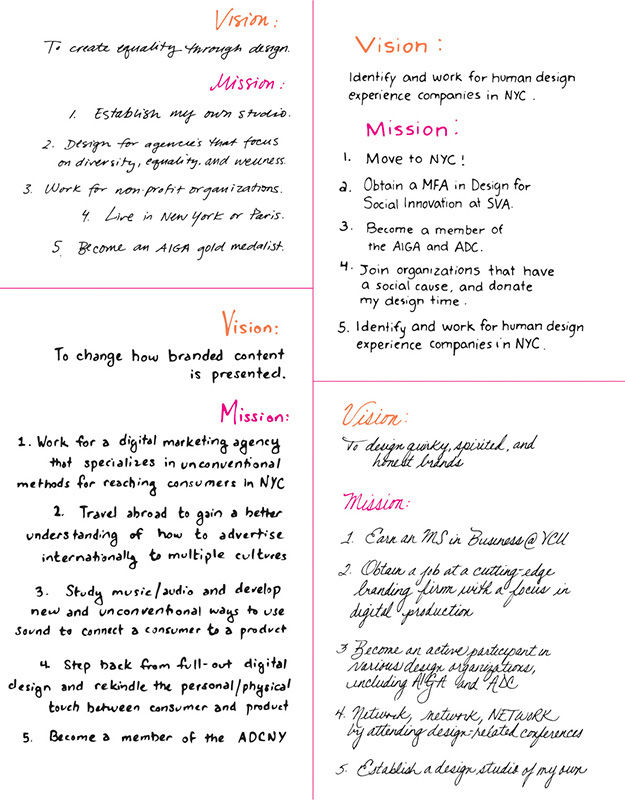 Vision:
To create equality through design.
Mission:
1. Establish my own studio.
2. Design for agencies that focus
on diversity, equality. and wellness.
3. Work for non-profit organizations.
4. Live in New York or Paris.
5. Become an AIGA gold medalist.
Vision:
Identify and work for human design
experience companies in NYC.
Mission:
1. Move to NYC!
2. Obtain a MFA in Design for
Social Innovation at SVA.
3. Become a member of
the AIGA and ADC.
4. Join organizations that have
a social cause, and donate
my design time.
5. Identify and work for human design
experience companies in NYC.
Vision:
To change how branded content
is presented.
Mission:
1. Work for a digital marketing agency
that specializes in unconventional
methods for reaching consumers in NYC
2. Travel abroad to gain a better
understanding of how to advertise
internationally to multiple cultures
3. Study music/audio and develop
new and unconventional ways to use
sound to connect a consumer to a product
4. Step back from full-out digital
design and rekindle the personal/physical
touch between consumer and product
5. Become a member of the ADCNY
Vision:
To design quirky, spirited, and
honest brands
Mission:
1. Earn an MS in Business @ VCU
2. Obtain a job at a cutting-edge
branding firm with a focus in
digital production
3 Become an active participant in
various design organizations,
including AIGA and ADC
4. Network, network, NETWORK
by attending design-related conferences
5. Establish a design studio of my own